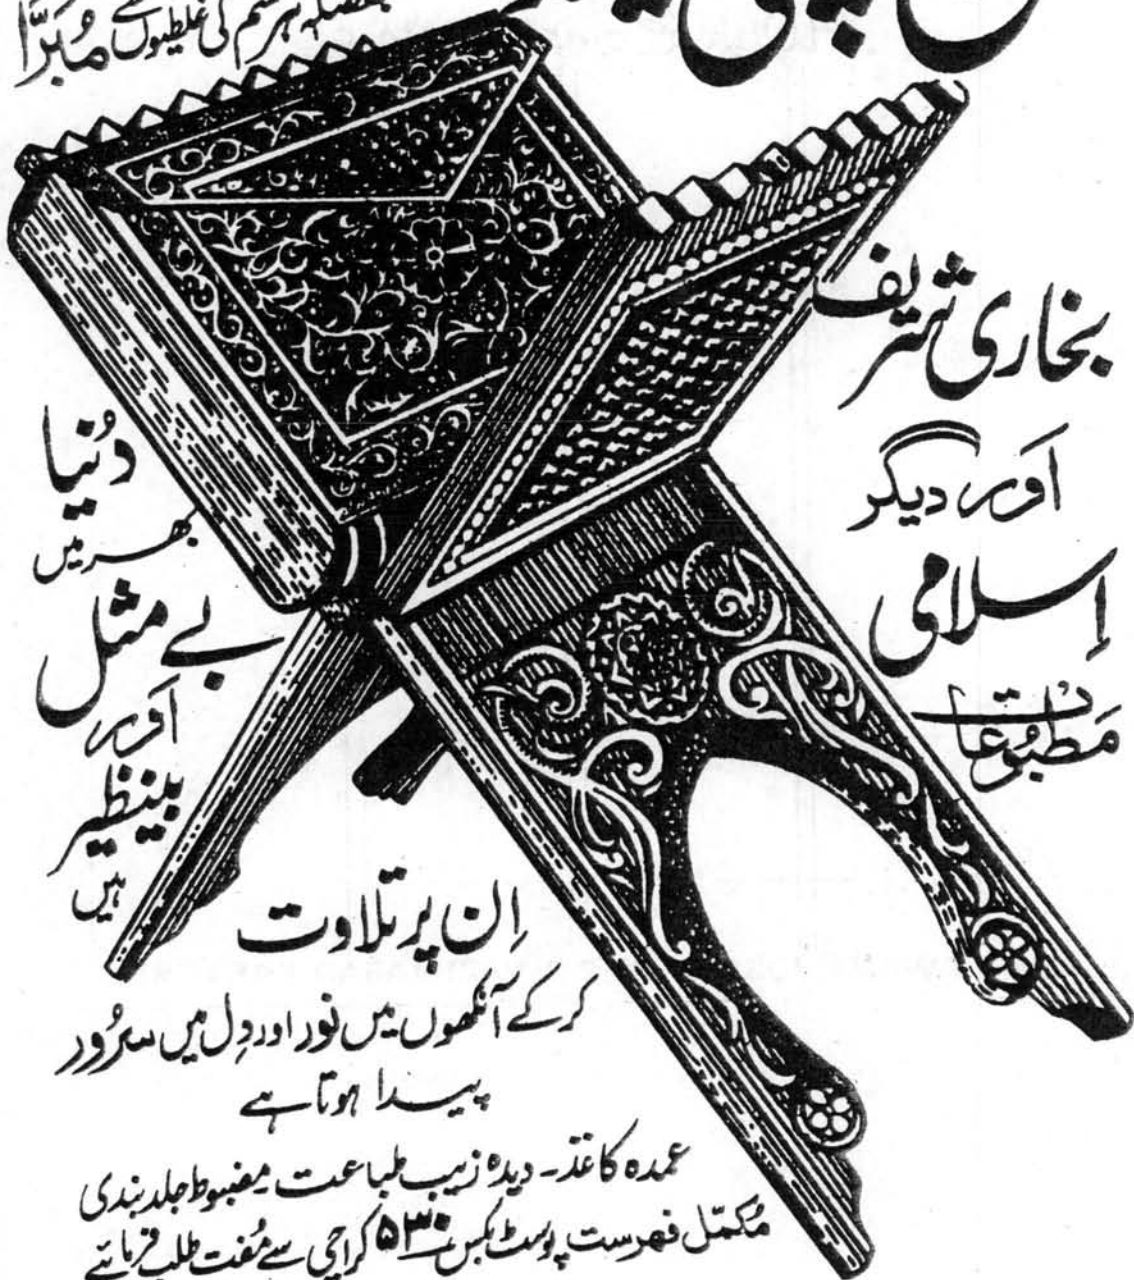 بفضلہ ہر قسم کی غلطیوں سے مُبرّا
بخاری شریف
اَور دیگر
اِسلامی
مَطبُوعات
دُنیا
بھر میں
بے مثل
اَور
بینظیر
ہیں
اِن پر تلاوت
کرکے آنکھوں میں نور اور دِل میں سرُور
پیدا ہوتا ہے
عمدہ کاغذ۔ دیدہ زیب طباعت۔ مضبوط جلد بندی
مُکمّل فہرست پوسٹ بکس ۵۳۰ کراچی سے مُفت طلب فرمائیے